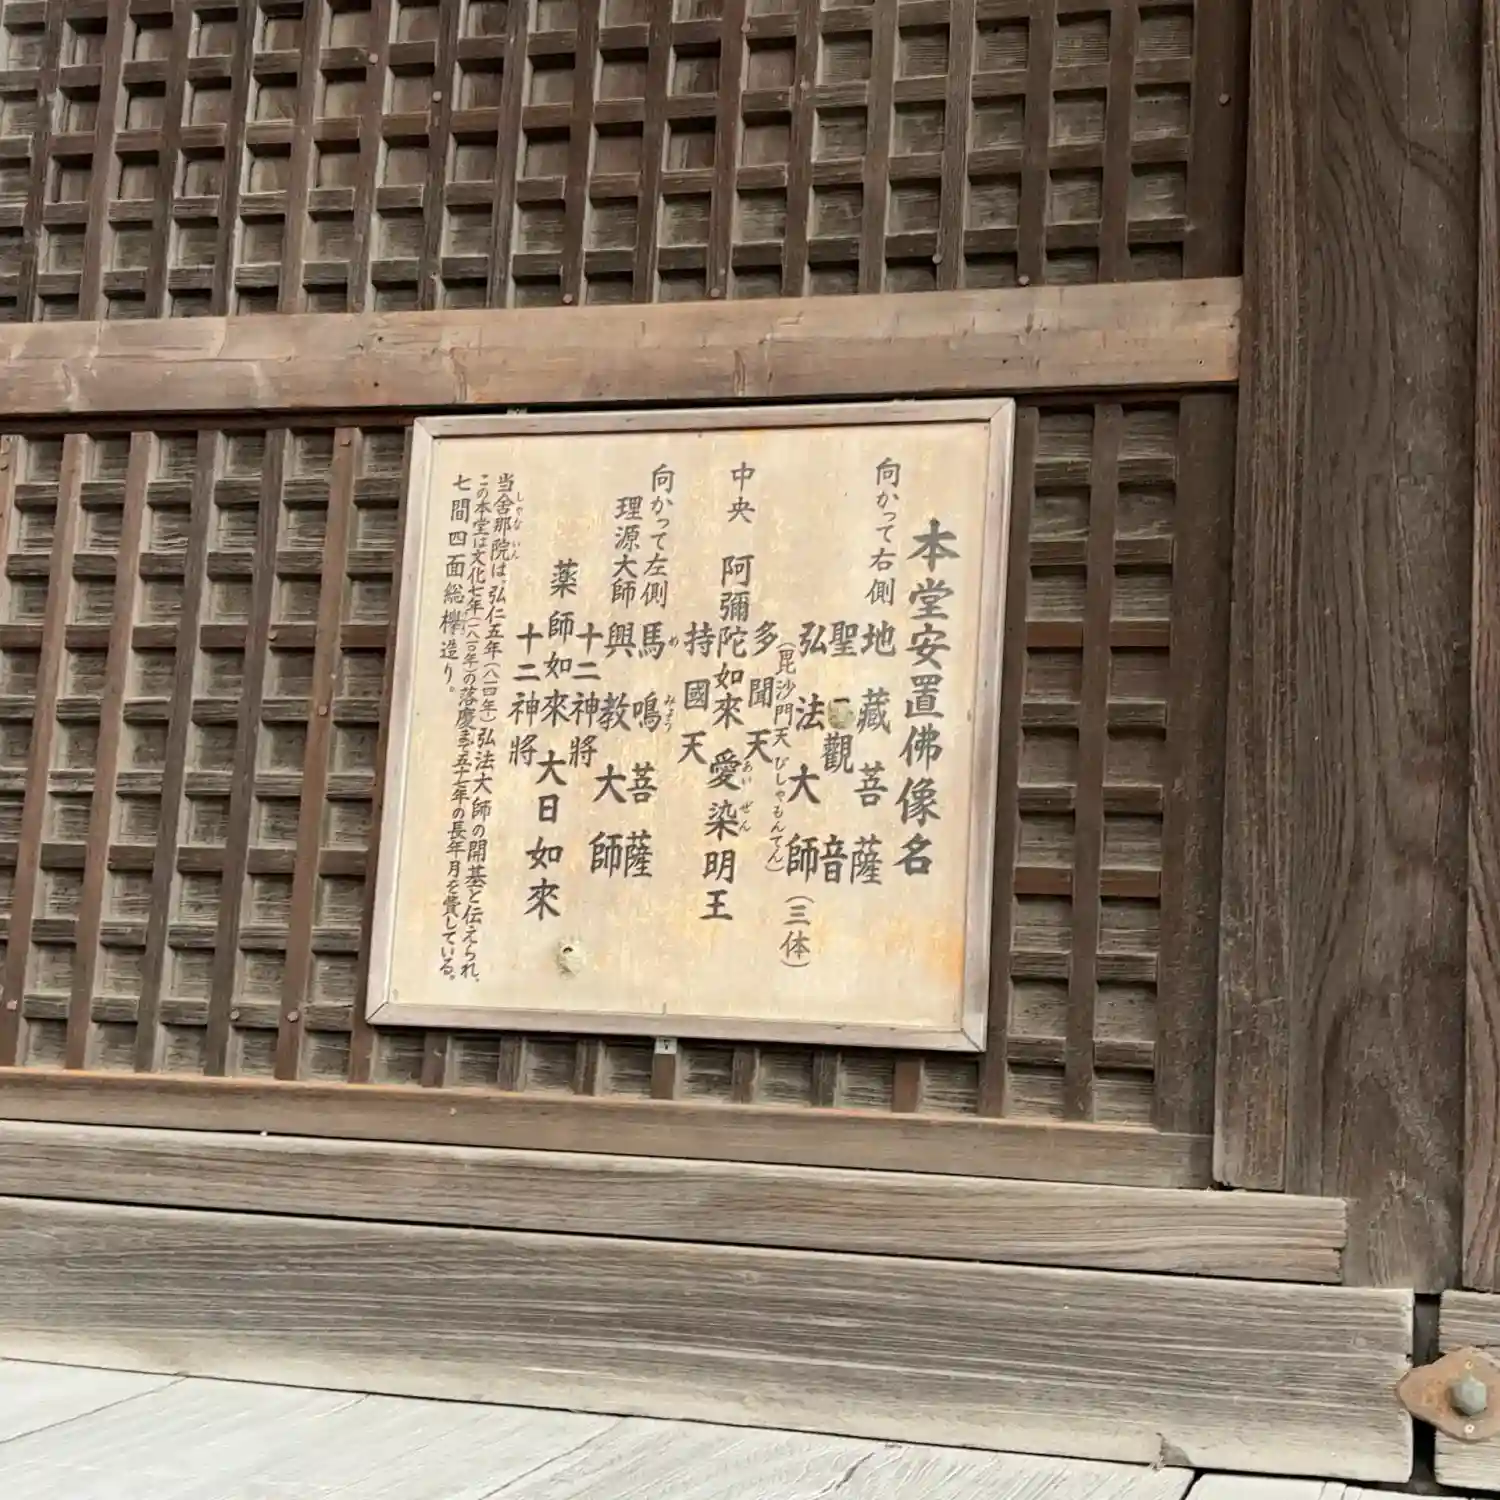 本堂安置佛像名
向かって右側
地藏菩薩
聖觀音
弘法大師(三体)
(毘沙門天びしゃもんてん)
多聞天
中央
阿彌陀如來
愛染明王
あいぜん
持國天
向かって左側
馬鳴菩薩
めみょう
理源大師
興教大師
十二神将
薬師如來
大日如來
十二神将
当舎那院は、弘仁五年(八一四年)弘法大師の開基と伝えられ、
しゃないん
この本堂は文化七年(一八一〇年)の落慶まで五十七年の長年月を費している。
七間四面総欅造り。